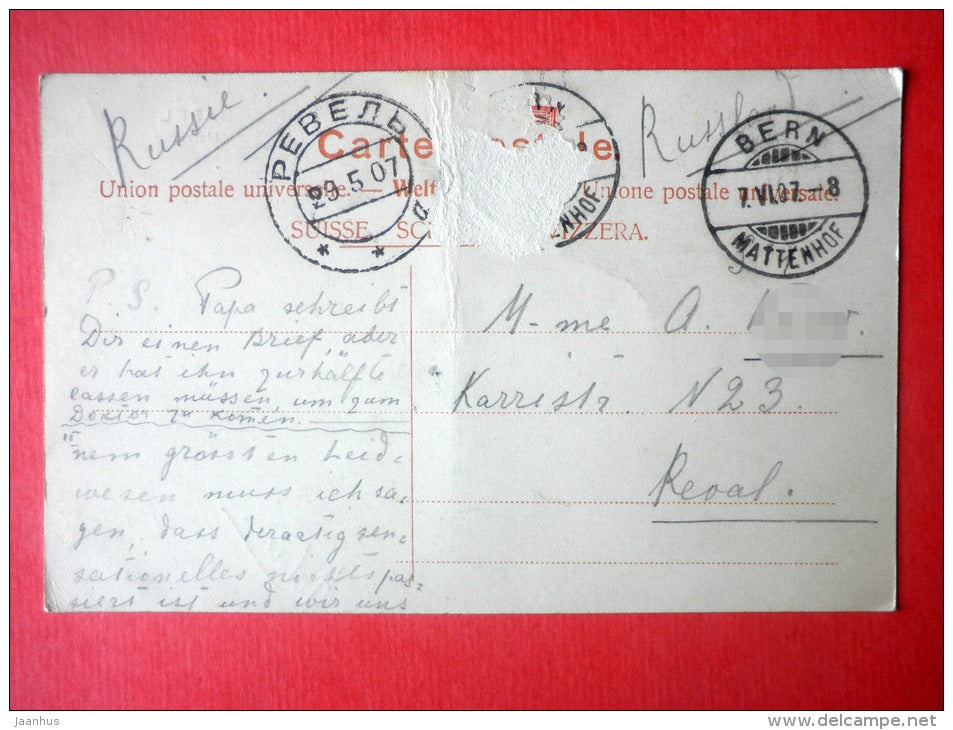 Russie.
Russland
Carte
Union postale universelle. — Welt
Unione postale universale.
SUISSE.
SVIZZERA.
РЕВЕЛЬ
29.5 07
NHOF
BERN
7.VI.07.–8
MATTENHOF
P. S. Papa schreibt
Dir einen Brief, aber
er hat ihn zur hälfte
lassen müssen, um zum
Doktor zu komen.
nem grössten Leid-
wesen muss ich sa-
gen, dass derartig sen-
sationelles nichts pas-
siert ist und wir uns
M-me A.
Karristr. N 23.
Reval.
jaanhus
www.delcampe.net